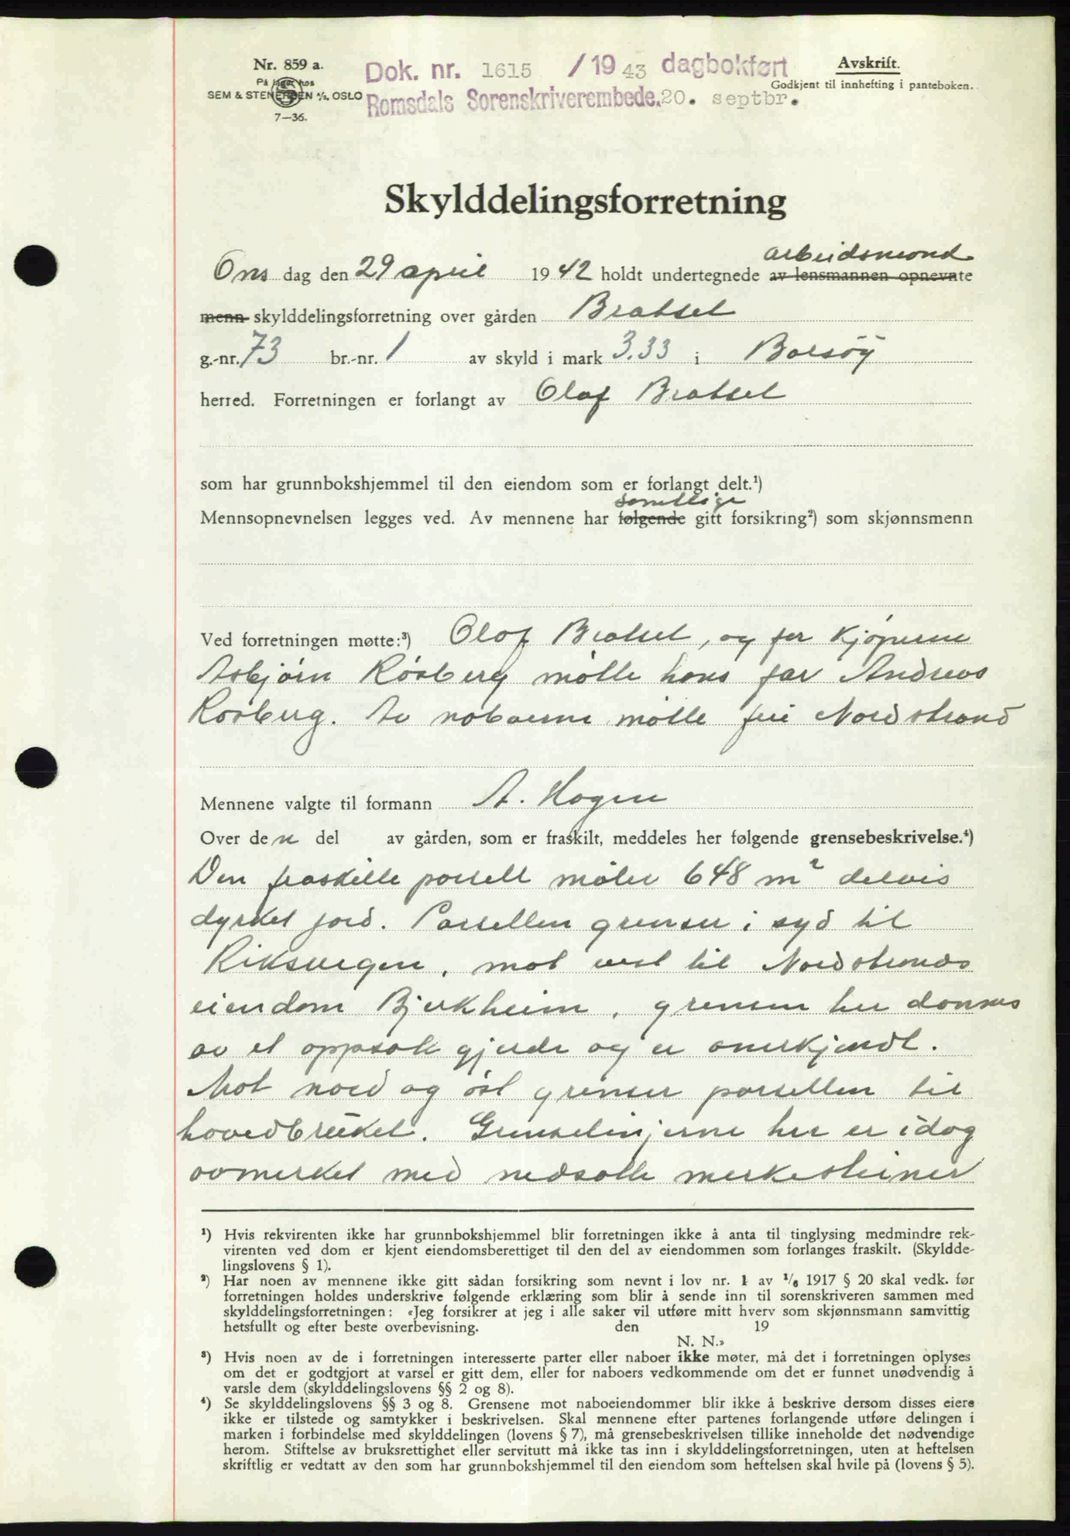 Nr. 859 a.
På lager hos
SEM & STENERSEN A/S, OSLO
7—36.
Dok. nr. 1615 /19 43 dagbokført
Romsdals Sorenskriverembede. 20. septbr.
Avskrift.
Godkjent til innhefting i panteboken.
Skylddelingsforretning
arbeidsmond
Ons dag den 29 april 1942 holdt undertegnede av lensmannen opnevnte
menn skylddelingsforretning over gården Bratset
g.-nr. 73 br.-nr. 1 av skyld i mark 3.33 i Bolsøy
herred. Forretningen er forlangt av Olaf Bratset
som har grunnbokshjemmel til den eiendom som er forlangt delt.¹)
samtlige
Mennsopnevnelsen legges ved. Av mennene har følgende gitt forsikring²) som skjønnsmenn
Ved forretningen møtte:³) Olaf Bratset, og for kjøperne
Asbjørn Røsberg møtte hans far Andreas
Røsberg. Av naboerne møtte fru Nordstrand
Mennene valgte til formann A. Hagen
Over den del av gården, som er fraskilt, meddeles her følgende grensebeskrivelse.⁴)
Den fraskilte parsell måler 648 m² delvis
dyrket jord. Parsellen grenser i syd til
Riksvegen, mot vest til Nordstrands
eiendom Bjerkheim, grensen her dannes
av et oppsatt gjerde og er anerkjendt.
Mot nord og øst grenser parsellen til
hovedbruket. Grenselinjerne her er idag
avmerket med nedsatte merkesteiner
¹) Hvis rekvirenten ikke har grunnbokshjemmel blir forretningen ikke å anta til tinglysing medmindre rek-
virenten ved dom er kjent eiendomsberettiget til den del av eiendommen som forlanges fraskilt. (Skyldde-
lingslovens § 1).
²) Har noen av mennene ikke gitt sådan forsikring som nevnt i lov nr. 1 av ¹/₆ 1917 § 20 skal vedk. før
forretningen holdes underskrive følgende erklæring som blir å sende inn til sorenskriveren sammen med
skylddelingsforretningen: «Jeg forsikrer at jeg i alle saker vil utføre mitt hverv som skjønnsmann samvittig
hetsfullt og efter beste overbevisning. den 19
N. N.»
³) Hvis noen av de i forretningen interesserte parter eller naboer ikke møter, må det i forretningen oplyses
om det er godtgjort at varsel er gitt dem, eller for naboers vedkommende om det er funnet unødvendig å
varsle dem (skylddelingslovens §§ 2 og 8).
⁴) Se skylddelingslovens §§ 3 og 8. Grensene mot naboeiendommer blir ikke å beskrive dersom disses eiere
ikke er tilstede og samtykker i beskrivelsen. Skal mennene efter partenes forlangende utføre delingen i
marken i forbindelse med skylddelingen (lovens § 7), må grensebeskrivelsen tillike inneholde det nødvendige
herom. Stiftelse av bruksrettighet eller servitutt må ikke tas inn i skylddelingsforretningen, uten at heftelsen
skriftlig er vedtatt av den som har grunnbokshjemmel til den eiendom som heftelsen skal hvile på (lovens § 5).